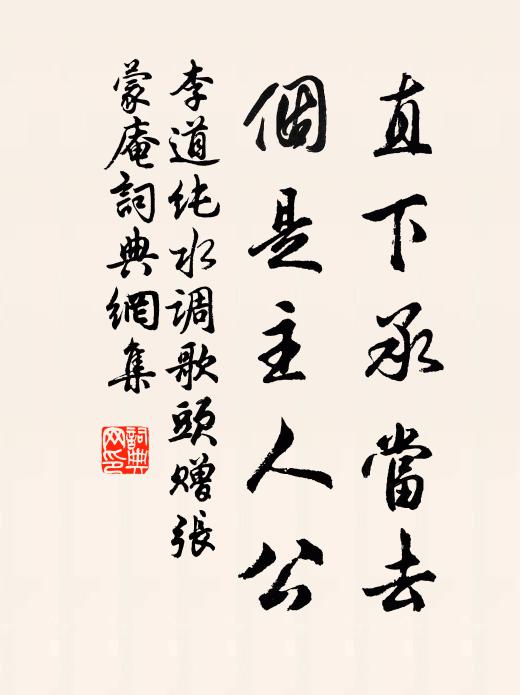 直下承當去
個是主人公
李道纯水調歌頭贈張
蒙庵詞典網集
詞典网印